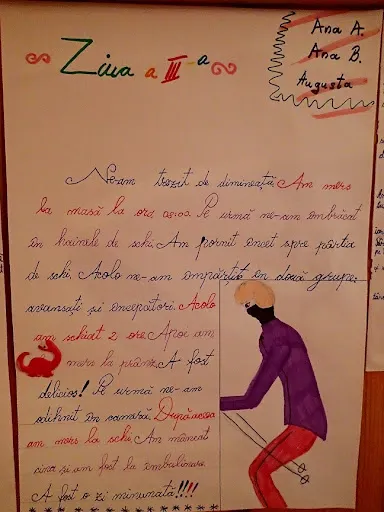 Ziua a III-a
Ana A.
Ana B.
Augusta
Ne-am trezit de dimineață. Am mers
la masă la ora 08:00. Pe urmă ne-am îmbrăcat
în hainele de schi. Am pornit încet spre pârtia
de schi. Acolo ne-am împărțit în două grupe:
avansați și începători. Acolo
am schiat 2 ore. Apoi am
mers la prânz. A fost
delicios! Pe urmă ne-am
odihnit în cameră. După aceea
am mers la schi. Am mâncat
cina și am fost la
A fost o zi minunată!!!!